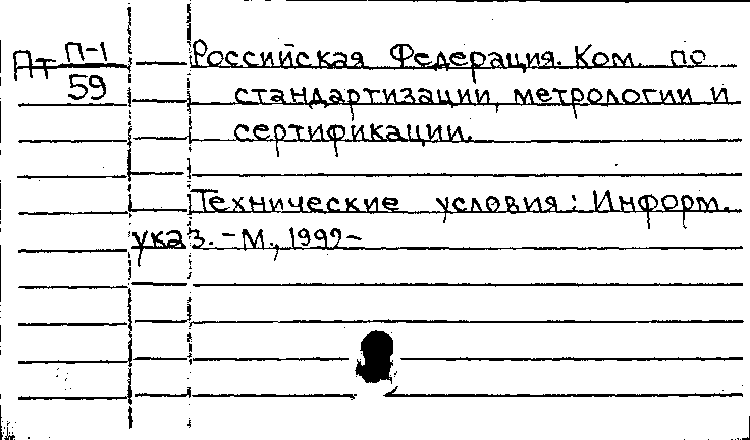 Пт П-1
59
Российская Федерация. Ком. по
стандартизации, метрологии и
сертификации.
Технические условия: Информ.
указ. - М., 1999-